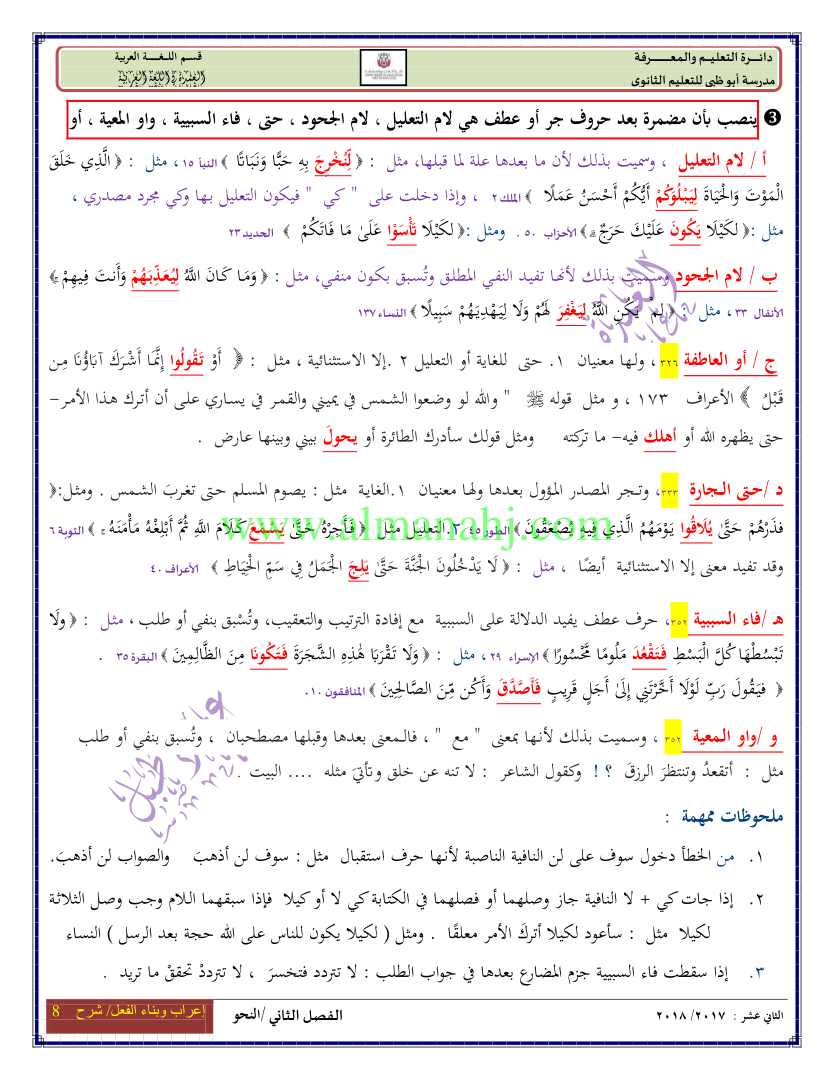 دائـــرة التعليـم والمعـــــرفة
مدرسة أبو ظبي للتعليم الثانوي
قسـم اللـغـــة العربية
❸ ينصب بأن مضمرة بعد حروف جر أو عطف هي لام التعليل ، لام الجحود ، حتى ، فاء السببية ، واو المعية ، أو
أ / لام التعليل ، وسميت بذلك لأن ما بعدها علة لما قبلها، مثل : ﴿ لِّنُخْرِجَ بِهِ حَبًّا وَنَبَاتًا ﴾ النبأ ١٥ ، مثل : ﴿ الَّذِي خَلَقَ
الْمَوْتَ وَالْحَيَاةَ لِيَبْلُوَكُمْ أَيُّكُمْ أَحْسَنُ عَمَلًا ﴾ الملك٢ ، وإذا دخلت على " كي " فيكون التعليل بها وكي مجرد مصدري ،
مثل :﴿ لكَيْلَا يَكُونَ عَلَيْكَ حَرَجٌ ﴾ الأحزاب ٥٠ . ومثل :﴿ لكَيْلَا تَأْسَوْا عَلَىٰ مَا فَاتَكُمْ ﴾ الحديد٢٣
ب / لام الجحود وسميت بذلك لأنها تفيد النفي المطلق وتُسبق بكون منفي، مثل : ﴿ وَمَا كَانَ اللَّهُ لِيُعَذِّبَهُمْ وَأَنتَ فِيهِمْ ﴾
الأنفال ٣٣ ، مثل : ﴿ لَمْ يَكُنِ اللَّهُ لِيَغْفِرَ لَهُمْ وَلَا لِيَهْدِيَهُمْ سَبِيلًا ﴾ النساء١٣٧
ج / أو العاطفة ٣٢٦ ، ولها معنيان ١. حتى للغاية أو التعليل ٢ .إلا الاستثنائية ، مثل : ﴿ أَوْ تَقُولُوا إِنَّمَا أَشْرَكَ آبَاؤُنَا مِن
قَبْلُ ﴾ الأعراف ١٧٣ ، و مثل قوله ﷺ " والله لو وضعوا الشمس في يميني والقمر في يساري على أن أترك هذا الأمر–
حتى يظهره الله أو أهلك فيه– ما تركته ومثل قولك سأدرك الطائرة أو يحولَ بيني وبينها عارض .
د /حتى الجارة ٣٣٣، وتجر المصدر المؤول بعدها ولها معنيان ١.الغاية مثل : يصوم المسلم حتى تغربَ الشمس . ومثل:﴿
فذَرْهُمْ حَتَّىٰ يُلَاقُوا يَوْمَهُمُ الَّذِي فِيهِ يُصْعَقُونَ ﴾ الطور ٤٥ .٢.التعليل مثل ﴿ فَأَجِرْهُ حَتَّىٰ يَسْمَعَ كَلَامَ اللَّهِ ثُمَّ أَبْلِغْهُ مَأْمَنَهُ ﴾ التوبة ٦
www.almanahj.com
وقد تفيد معنى إلا الاستثنائية أيضًا ، مثل : ﴿ لَا يَدْخُلُونَ الْجَنَّةَ حَتَّىٰ يَلِجَ الْجَمَلُ فِي سَمِّ الْخِيَاطِ ﴾ الأعراف ٤٠
هـ /فاء السببية ٣٥٢، حرف عطف يفيد الدلالة على السببية مع إفادة الترتيب والتعقيب، وتُسْبق بنفي أو طلب ، مثل : ﴿ ولَا
تَبْسُطْهَا كُلَّ الْبَسْطِ فَتَقْعُدَ مَلُومًا مَّحْسُورًا ﴾ الإسراء ٢٩ ، مثل : ﴿ وَلَا تَقْرَبَا هَٰذِهِ الشَّجَرَةَ فَتَكُونَا مِنَ الظَّالِمِينَ ﴾ البقرة ٣٥ .
﴿ فيَقُولَ رَبِّ لَوْلَا أَخَّرْتَنِي إِلَىٰ أَجَلٍ قَرِيبٍ فَأَصَّدَّقَ وَأَكُن مِّنَ الصَّالِحِينَ ﴾ المنافقون ١٠.
و /واو المعية ٣٥٢ ، وسميت بذلك لأنها بمعنى " مع " ، فالمعنى بعدها وقبلها مصطحبان ، وتُسبق بنفي أو طلب
مثل : أتقعدُ وتنتظرَ الرزقَ ؟ ! وكقول الشاعر : لا تنه عن خلق وتأتيَ مثله .... البيت .
ملحوظات مهمة :
١. من الخطأ دخول سوف على لن النافية الناصبة لأنها حرف استقبال مثل : سوف لن أذهبَ والصواب لن أذهبَ.
٢. إذا جات كي + لا النافية جاز وصلهما أو فصلهما في الكتابة كي لا أو كيلا فإذا سبقهما اللام وجب وصل الثلاثة
لكيلا مثل : سأعود لكيلا أتركَ الأمر معلقًا . ومثل ( لكيلا يكون للناس على الله حجة بعد الرسل ) النساء
٣. إذا سقطت فاء السببية جزم المضارع بعدها في جواب الطلب : لا تتردد فتخسرَ ، لا تترددْ تحققْ ما تريد .
الثاني عشر : ٢٠١٧/ ٢٠١٨
الفصل الثاني /النحو
إعراب وبناء الفعل/ شرح 8